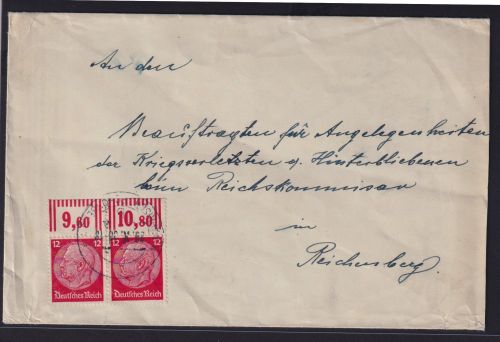 An den
Beauftragten für Angelegenheiten
der Kriegsverletzten u. Hinterbliebenen
beim Reichskommissar
in
Reichenberg.
9,60 10,80
12 12 12 12
Deutsches Reich Deutsches Reich